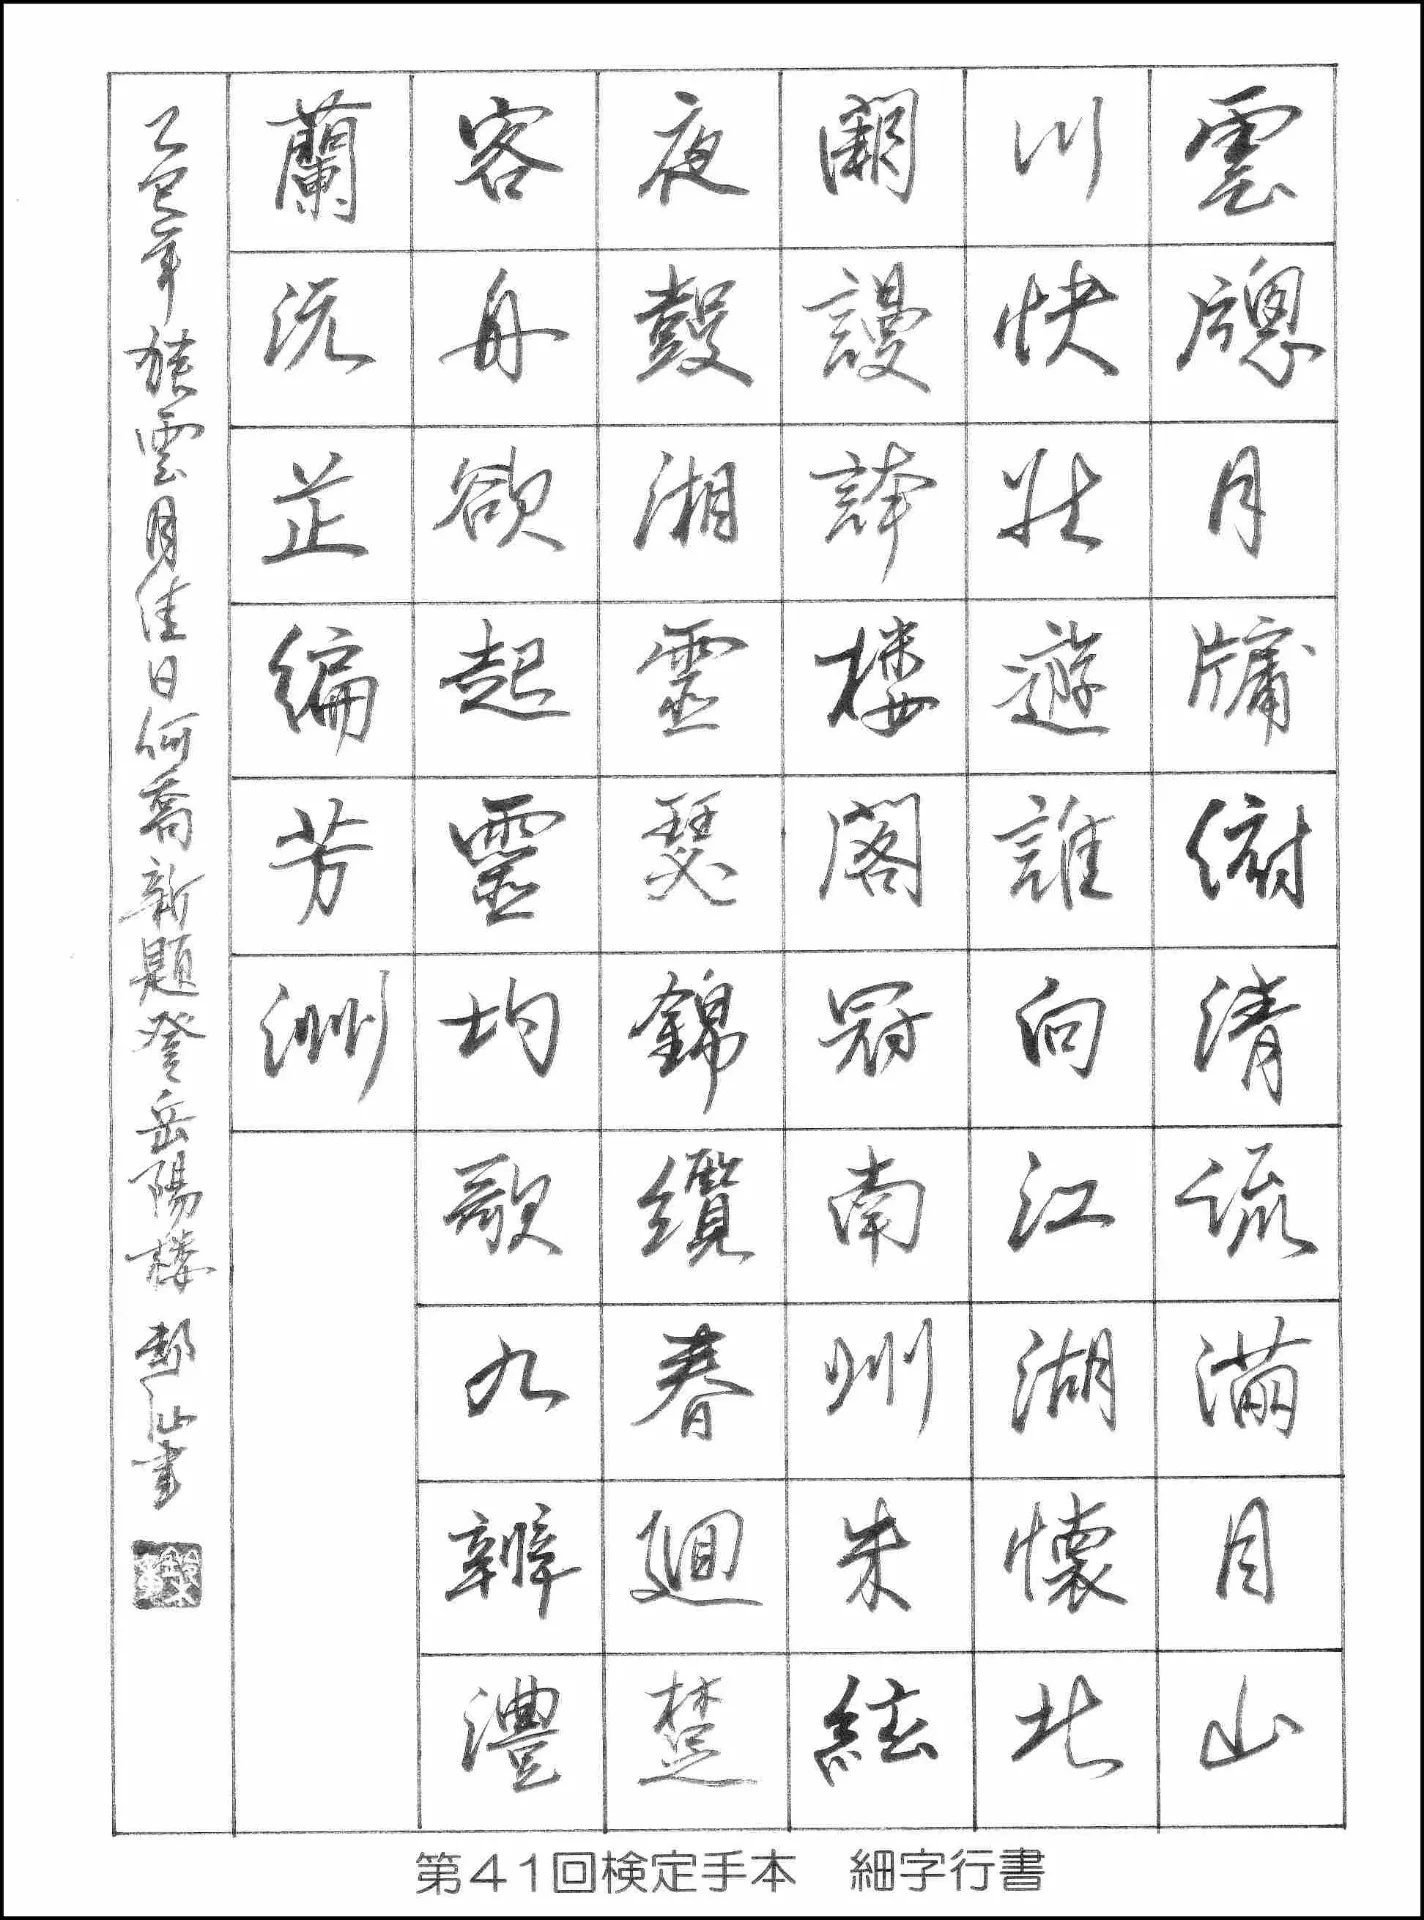 雲牕月牖俯清流滿目山
川快壯遊誰向江湖懷北
闕謾誇楼閣冠南州朱絃
夜鼓湘靈瑟錦纜春迴楚
客舟欲起靈均歌九辨澧
蘭沅芷編芳洲
乙巳年族雲月佳日何喬新題登岳陽楼 書
第41回検定手本 細字行書